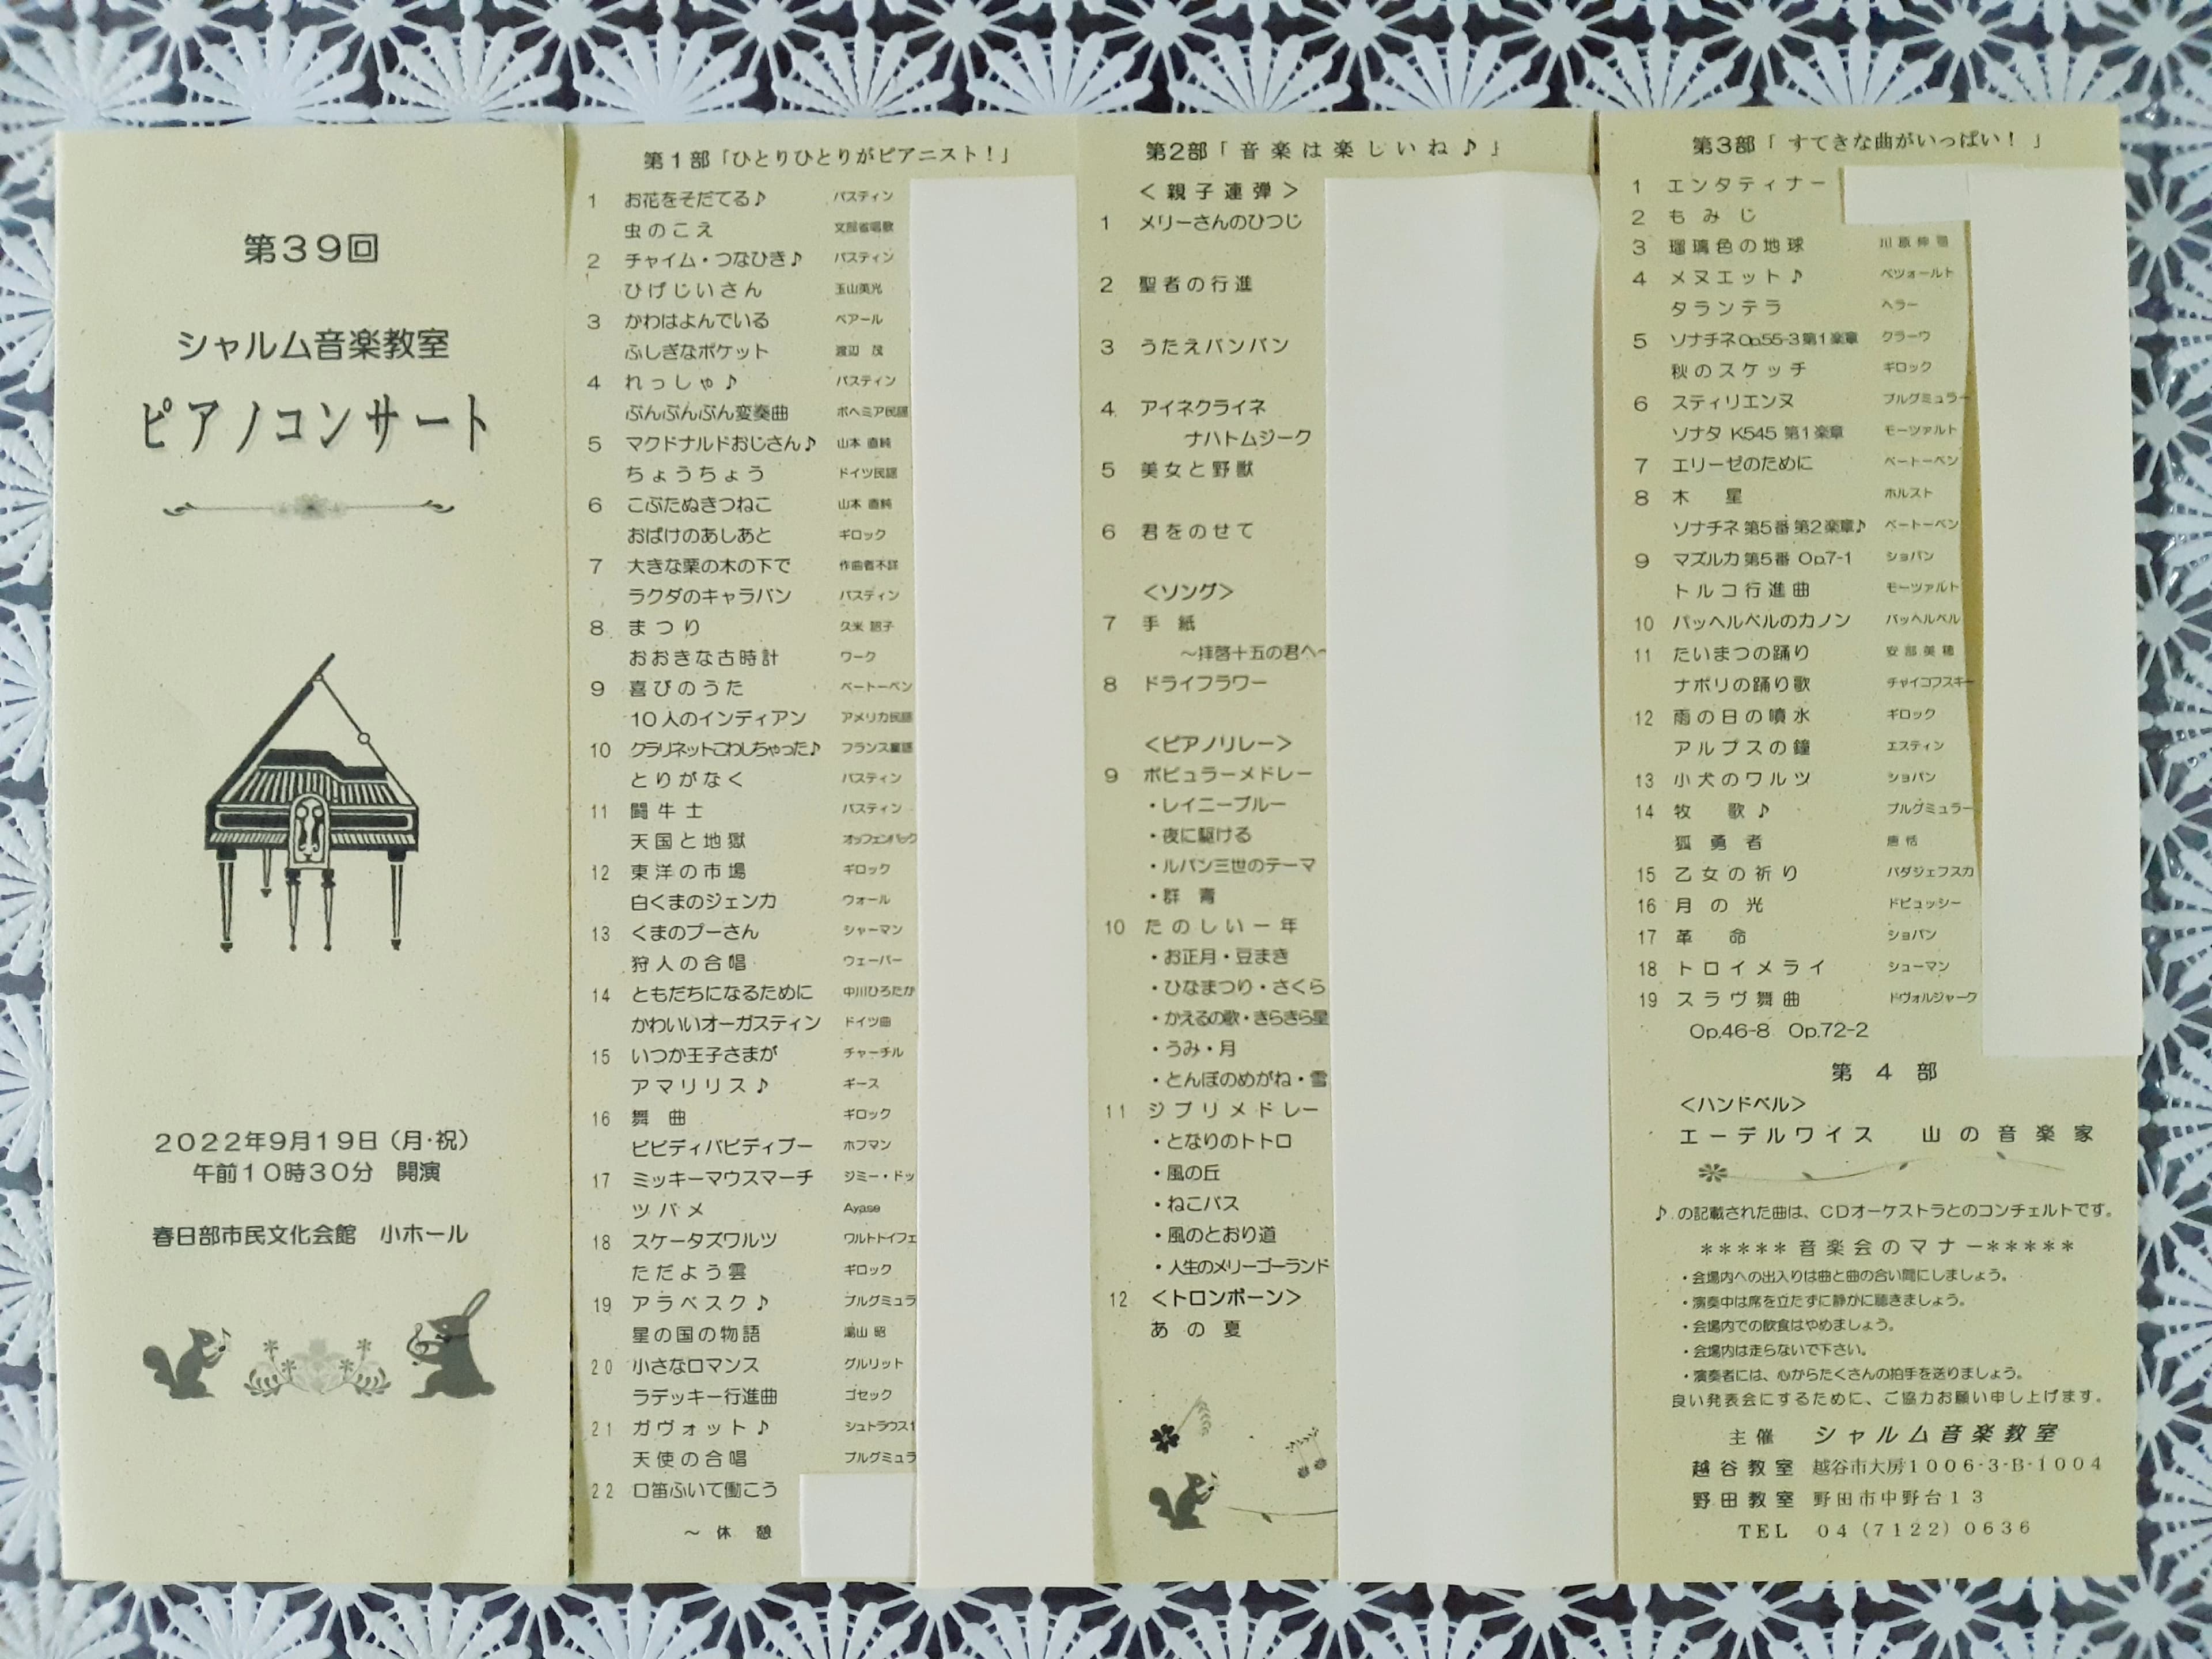 第39回
シャルム音楽教室
ピアノコンサート
2022年9月19日（月・祝）
午前10時30分　開演
春日部市民文化会館　小ホール
第1部「ひとりひとりがピアニスト！」
1 お花をそだてる♪ バスティン
虫のこえ 文部省唱歌
2 チャイム・つなひき♪ バスティン
ひげじいさん 玉山英光
3 かわはよんでいる ベアール
ふしぎなポケット 渡辺 茂
4 れっしゃ♪ バスティン
ぶんぶんぶん変奏曲 ボヘミア民謡
5 マクドナルドおじさん♪ 山本 直純
ちょうちょう ドイツ民謡
6 こぶたぬきつねこ 山本 直純
おばけのあしあと ギロック
7 大きな栗の木の下で 作曲者不詳
ラクダのキャラバン バスティン
8 まつり 久米 詔子
おおきな古時計 ワーク
9 喜びのうた ベートーベン
10人のインディアン アメリカ民謡
10 クラリネットこわしちゃった♪ フランス童謡
とりがなく バスティン
11 闘牛士 バスティン
天国と地獄 オッフェンバック
12 東洋の市場 ギロック
白くまのジェンカ ウォール
13 くまのプーさん シャーマン
狩人の合唱 ウェーバー
14 ともだちになるために 中川ひろたか
かわいいオーガスティン ドイツ曲
15 いつか王子さまが チャーチル
アマリリス♪ ギース
16 舞曲 ギロック
ビビディバビディブー ホフマン
17 ミッキーマウスマーチ ジミー・ドッ
ツバメ Ayase
18 スケータズワルツ ワルトトイフェ
ただよう雲 ギロック
19 アラベスク♪ ブルグミュラ
星の国の物語 湯山 昭
20 小さなロマンス グルリット
ラデッキー行進曲 ゴセック
21 ガヴォット♪ シュトラウス1
天使の合唱 ブルグミュラ
22 口笛ふいて働こう
～休憩
第2部「音楽は楽しいね♪」
＜親子連弾＞
1 メリーさんのひつじ
2 聖者の行進
3 うたえバンバン
4 アイネクライネ
ナハトムジーク
5 美女と野獣
6 君をのせて
＜ソング＞
7 手紙
～拝啓十五の君へ～
8 ドライフラワー
＜ピアノリレー＞
9 ポピュラーメドレー
・レイニーブルー
・夜に駆ける
・ルパン三世のテーマ
・群青
10 たのしい一年
・お正月・豆まき
・ひなまつり・さくら
・かえるの歌・きらきら星
・うみ・月
・とんぼのめがね・雪
11 ジブリメドレー
・となりのトトロ
・風の丘
・ねこバス
・風のとおり道
・人生のメリーゴーランド
12 ＜トロンボーン＞
あの夏
第3部「すてきな曲がいっぱい！」
1 エンタティナー
2 もみじ
3 瑠璃色の地球 川原伸司
4 メヌエット♪ ペツォールト
タランテラ ヘラー
5 ソナチネOp.55-3第1楽章 クラーウ
秋のスケッチ ギロック
6 スティリエンヌ ブルグミュラー
ソナタ K545 第1楽章 モーツァルト
7 エリーゼのために ベートーベン
8 木星 ホルスト
ソナチネ 第5番 第2楽章♪ ベートーベン
9 マズルカ 第5番 Op.7-1 ショパン
トルコ行進曲 モーツァルト
10 パッヘルベルのカノン パッヘルベル
11 たいまつの踊り 安部美穂
ナポリの踊り歌 チャイコフスキー
12 雨の日の噴水 ギロック
アルプスの鐘 エステン
13 小犬のワルツ ショパン
14 牧歌♪ ブルグミュラー
孤勇者 唐恬
15 乙女の祈り バダジェフスカ
16 月の光 ドビュッシー
17 革命 ショパン
18 トロイメライ シューマン
19 スラヴ舞曲 ドヴォルジャーク
Op.46-8 Op.72-2
第4部
＜ハンドベル＞
エーデルワイス　山の音楽家
♪.の記載された曲は、CDオーケストラとのコンチェルトです。
＊＊＊＊＊音楽会のマナー＊＊＊＊＊
・会場内への出入りは曲と曲の合い間にしましょう。
・演奏中は席を立たずに静かに聴きましょう。
・会場内での飲食はやめましょう。
・会場内は走らないで下さい。
・演奏者には、心からたくさんの拍手を送りましょう。
良い発表会にするために、ご協力お願い申し上げます。
主催　シャルム音楽教室
越谷教室　越谷市大房1006-3-B-1004
野田教室　野田市中野台13
TEL　04（7122）0636